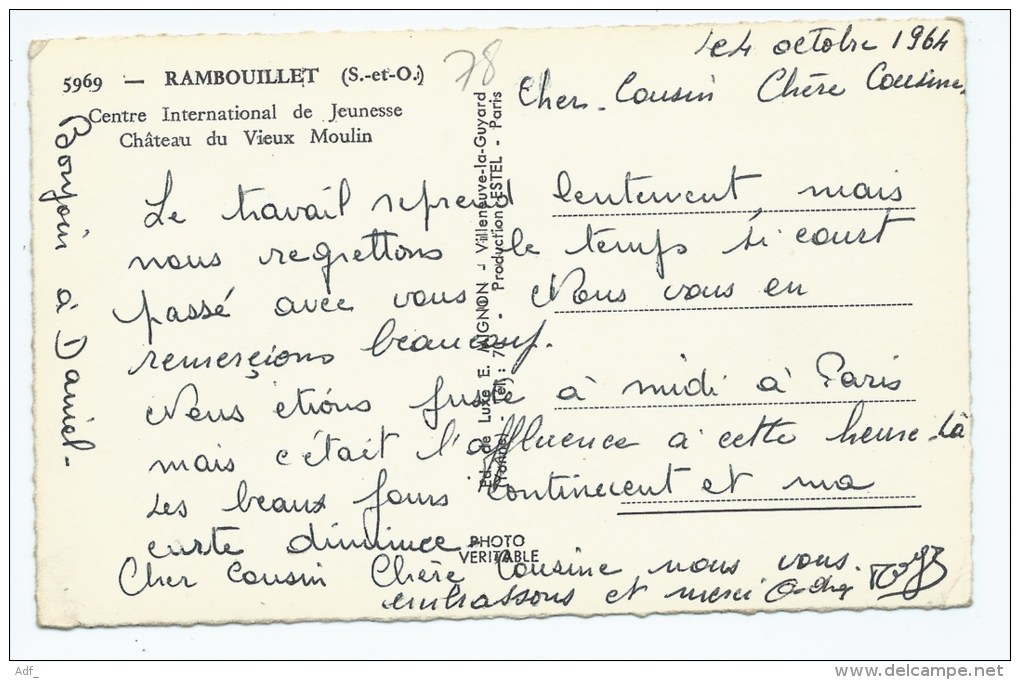 le 4 octobre 1964
78
5969 — RAMBOUILLET (S.-et-O.)
Centre International de Jeunesse
Château du Vieux Moulin
Cher Cousin Chère Cousine,
Le travail reprend lentement mais
nous regrettons le temps si court
passé avec vous Nous vous en
remerçions beaucoup.
Nous étions juste à midi à Paris
mais c'était l'affluence à cette heure-là
Les beaux jours continuent et ma
curte diminue
Cher Cousin Chère Cousine nous vous
embrassons et merci
Bonjour à Daniel-
Ed. de Luxe E. MIGNON - Villeneuve-la-Guyard
(Yonne) - Tél. : 70 - Production ESTEL - Paris
PHOTO
VERITABLE
Adf_
www.delcampe.net